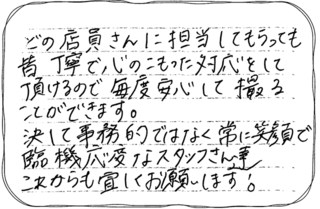 どの店員さんに担当してもらっても
皆丁寧で心のこもった対応をして
頂けるので毎度安心して撮る
ことができます。
決して事務的ではなく常に笑顔で
臨機応変なスタッフさん
これからも宜しくお願いします!